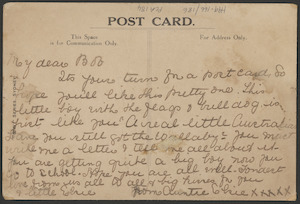 POST CARD.
This Space
is for Communication Only.
For Address Only.
My dear Bob
Its your turn for a post card, So
hope you'll like this pretty one. This
little boy with the flags & bull dog is
just like you. A real little Australian
Have you still got the Wallaby? You must
write me a letter & tell me all about it
you are getting quite a big boy now you
go to school. Hope you are all well.
love from us all to all & big kisses for you
& little
from Auntie Elsie xxxxx